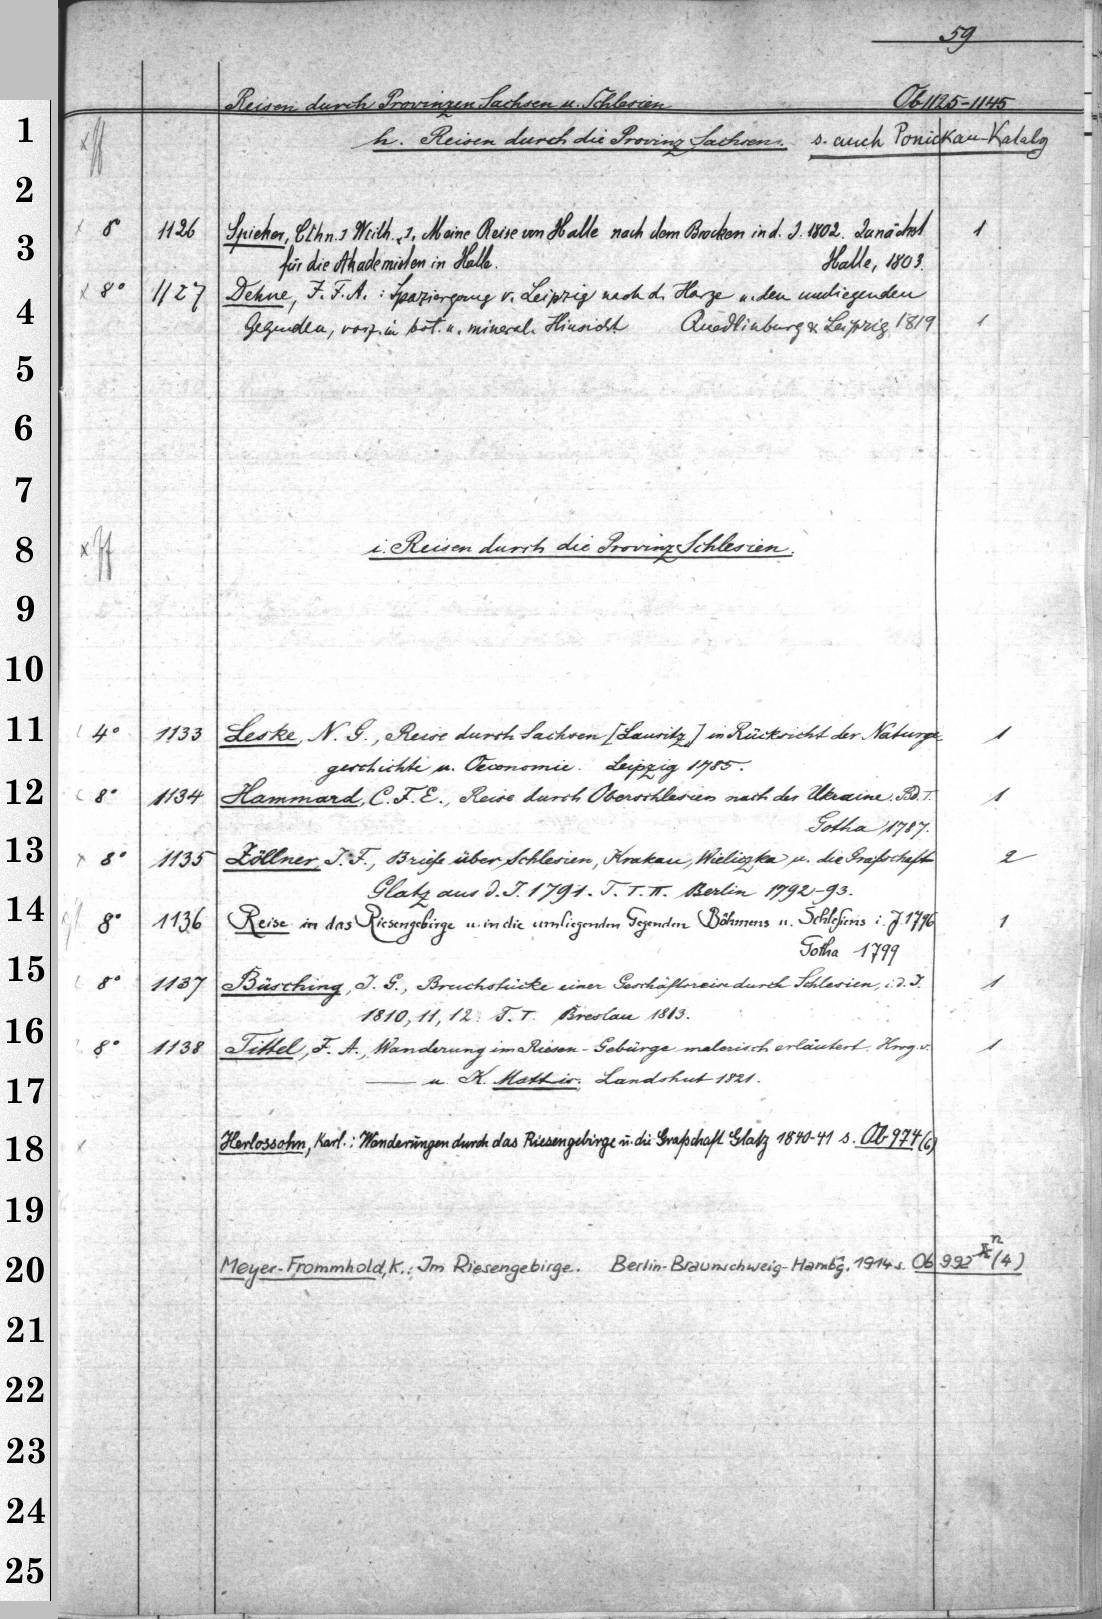 59
Reisen durch Provinzen Sachsen u. Schlesien Ob 1125-1145
1 h. Reisen durch die Provinz Sachsen. s. auch Ponickau-Katalog
2
8° 1126 Spieker, Wilh. Meine Reise von Halle nach dem Brocken in d. J. 1802. Zunächst 1
3 für die Akademisten in Halle. Halle, 1803.
8° 1127 Dehne, F. F. A.: Spaziergang v. Leipzig nach d. Harze u. den umliegenden
4 Gegenden, vorz. in bot. u. mineral. Hinsicht Quedlinburg & Leipzig 1819 1
5
6
7
8 i. Reisen durch die Provinz Schlesien.
9
10
11 4° 1133 Leske, N. G., Reise durch Sachsen [Lausitz] in Rücksicht der Naturge- 1
geschichte u. Oeconomie. Leipzig 1785.
12 8° 1134 Hammard, C. F. E., Reise durch Oberschlesien nach der Ukraine. Bd. I. 1
Gotha 1787.
13 8° 1135 Zöllner, J. F., Briefe über Schlesien, Krakau, Wieliczka u. die Grafschaft 2
Glatz aus d. J. 1791. T. I. II. Berlin 1792-93.
14 8° 1136 Reise in das Riesengebirge u. in die umliegenden Gegenden Böhmens u. Schlesiens i. J. 1796 1
Gotha 1799
15 8° 1137 Büsching, J. G., Bruchstücke einer Geschäftsreise durch Schlesien, i. d. J. 1
1810, 11, 12. T. I. Breslau 1813.
16 8° 1138 Tittel, F. A., Wanderung im Riesen-Gebürge malerisch erläutert. Hrsg. v. 1
17 —— u. K. Landshut 1821.
18 Herlossohn, Karl.: Wanderungen durch das Riesengebirge u. die Grafschaft Glatz 1840-41 s. Ob 974 (6)
19
20 Meyer-Frommhold, K.: Im Riesengebirge. Berlin-Braunschweig-Hambg. 1914 s. Ob 992 n (4)
21
22
23
24
25